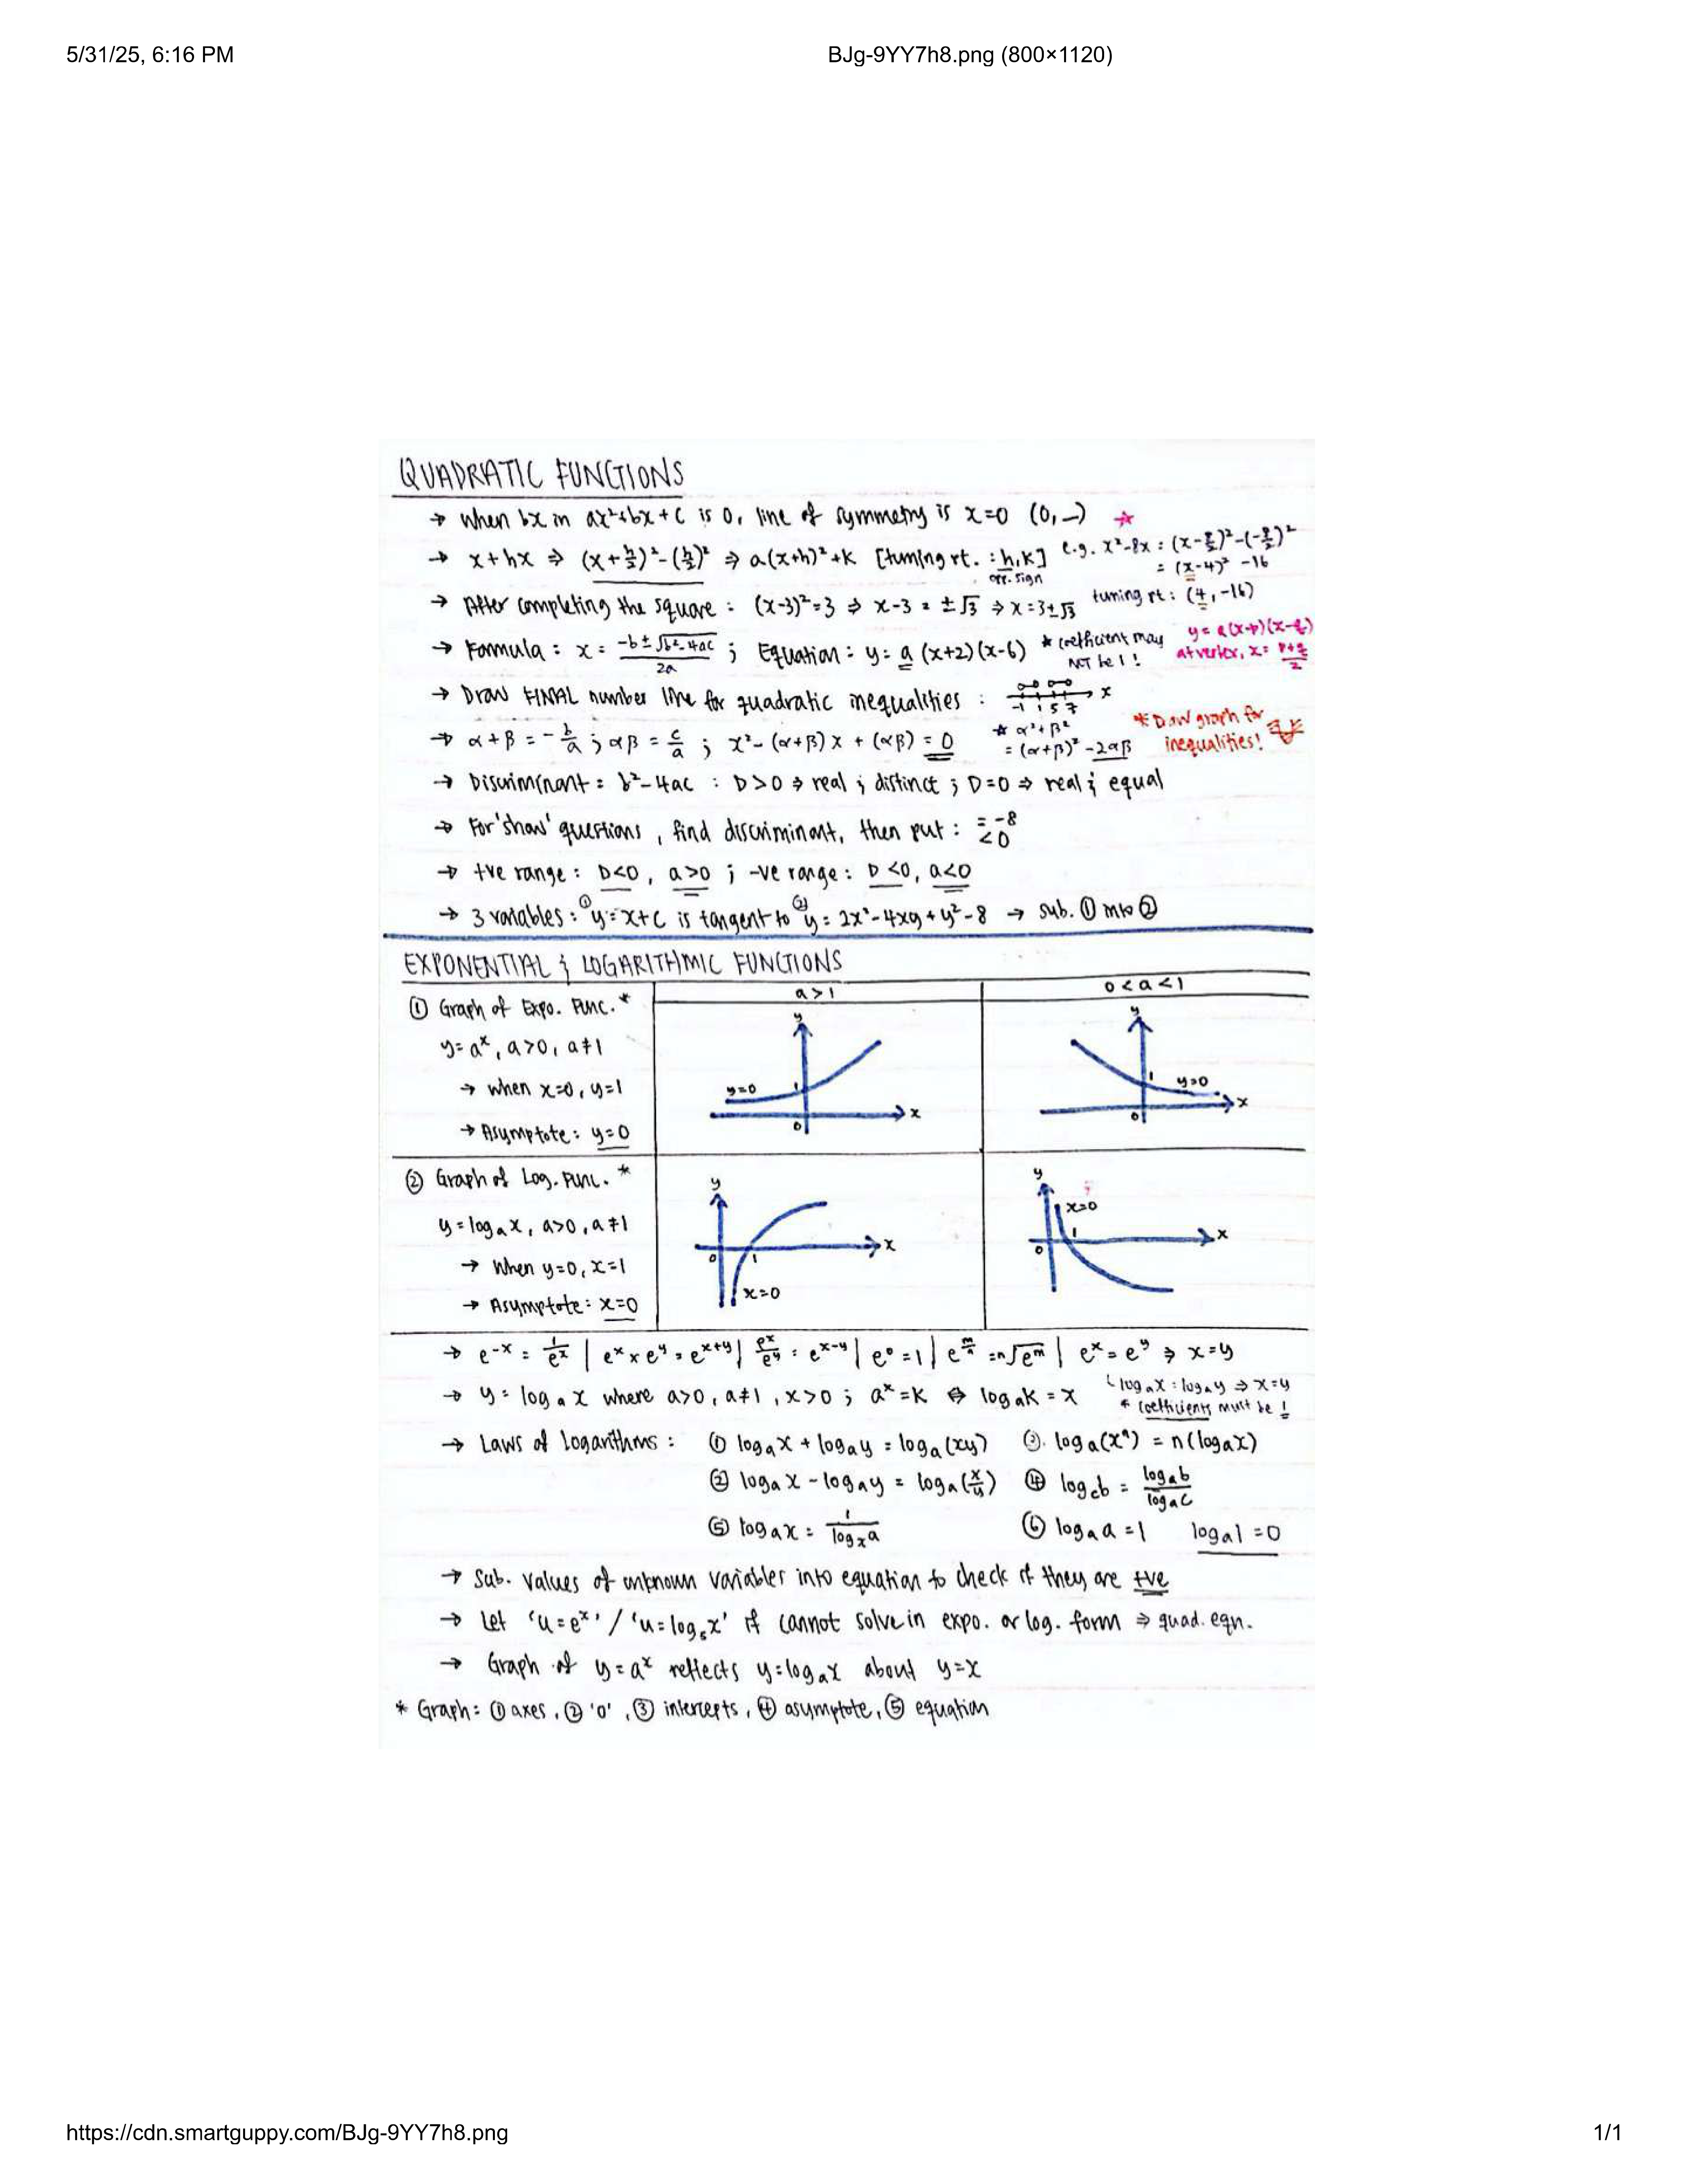 5/31/25, 6:16 PM BJg-9YY7h8.png (800×1120)
QUADRATIC FUNCTIONS
→ When bx in ax²+bx+c is 0, line of symmetry is x=0 (0,–) ☆
→ x+hx ⇒ (x+h/2)²-(h/2)² ⇒ a(x+h)²+k [turning pt. : h,k] e.g. x²-8x = (x-8/2)²-(-8/2)²
opp. sign = (x-4)² -16
→ After completing the square : (x-3)²=3 ⇒ x-3 = ±√3 ⇒ x=3±√3 turning pt : (4,-16)
→ Formula : x = (-b±√b²-4ac)/2a ; Equation : y = a (x+2)(x-6) * coefficient may NOT be 1 ! y = a(x-p)(x-q)
at vertex, x = (p+q)/2
→ Draw FINAL number line for quadratic inequalities : -1 1 5 7 x
→ α+β = -b/a ; αβ = c/a ; x²-(α+β)x + (αβ) = 0 * α²+β² = (α+β)² -2αβ * Draw graph for inequalities!
→ Discriminant = b²-4ac : D>0 ⇒ real & distinct ; D=0 ⇒ real & equal
→ For 'show' questions, find discriminant, then put : = -8
<0
→ +ve range : D<0, a>0 ; -ve range : D<0, a<0
→ 3 variables : ① y=x+c is tangent to ② y = 2x²-4xy+y²-8 → sub. ① into ②
EXPONENTIAL & LOGARITHMIC FUNCTIONS
a>1 0<a<1
① Graph of Expo. Func. *
y=aˣ, a>0, a≠1
→ when x=0, y=1
→ Asymptote : y=0
y y=0 1 0 x
y 1 y=0 0 x
② Graph of Log. Func. *
y=logₐx, a>0, a≠1
→ When y=0, x=1
→ Asymptote : x=0
y 0 1 x x=0
y x=0 1 0 x
→ e⁻ˣ = 1/eˣ | eˣ×eʸ = eˣ⁺ʸ | eˣ/eʸ = eˣ⁻ʸ | e⁰=1 | e^(m/n) = n√eᵐ | eˣ=eʸ ⇒ x=y
→ y = logₐx where a>0, a≠1, x>0 ; aˣ=k ⇔ logₐk = x
└ logₐx = logₐy ⇒ x=y
* coefficients must be 1
→ Laws of Logarithms : ① logₐx + logₐy = logₐ(xy) ③. logₐ(xⁿ) = n(logₐx)
② logₐx - logₐy = logₐ(x/y) ④ log_c b = logₐb/logₐc
⑤ logₐx = 1/logₓa ⑥ logₐa =1 logₐ1 =0
→ Sub. values of unknown variables into equation to check if they are +ve
→ Let 'u=eˣ' / 'u=log₅x' if cannot solve in expo. or log. form ⇒ quad. eqn.
→ Graph of y=aˣ reflects y=logₐx about y=x
* Graph : ① axes, ② '0', ③ intercepts, ④ asymptote, ⑤ equation
https://cdn.smartguppy.com/BJg-9YY7h8.png 1/1